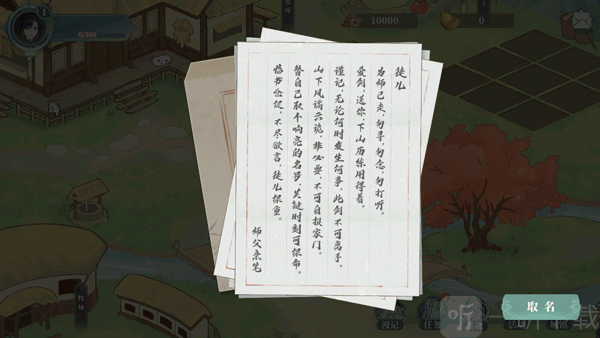 1
0/200
10000
0
徒儿
为师已走，勿寻，勿念，勿打听。
爱剑送你，下山历练用得着。
谨记，无论何时发生何事，此剑不可离手。
山下风谲云诡，非必要，不可自报家门。
替自己取个响亮的名号，关键时刻可保命。
临书仓促，不尽欲言，徒儿保重。
师父亲笔
牧场
漫记
任务
取名